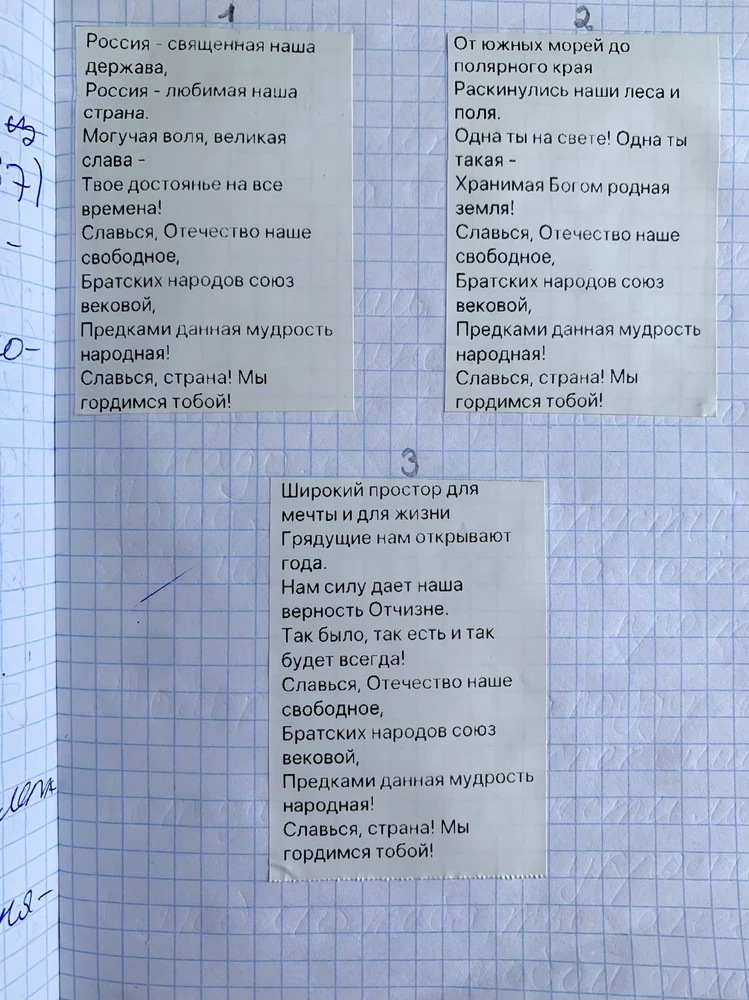 1
Россия - священная наша
держава,
Россия - любимая наша
страна.
Могучая воля, великая
слава -
Твое достоянье на все
времена!
Славься, Отечество наше
свободное,
Братских народов союз
вековой,
Предками данная мудрость
народная!
Славься, страна! Мы
гордимся тобой!
2
От южных морей до
полярного края
Раскинулись наши леса и
поля.
Одна ты на свете! Одна ты
такая -
Хранимая Богом родная
земля!
Славься, Отечество наше
свободное,
Братских народов союз
вековой,
Предками данная мудрость
народная!
Славься, страна! Мы
гордимся тобой!
3
Широкий простор для
мечты и для жизни
Грядущие нам открывают
года.
Нам силу дает наша
верность Отчизне.
Так было, так есть и так
будет всегда!
Славься, Отечество наше
свободное,
Братских народов союз
вековой,
Предками данная мудрость
народная!
Славься, страна! Мы
гордимся тобой!